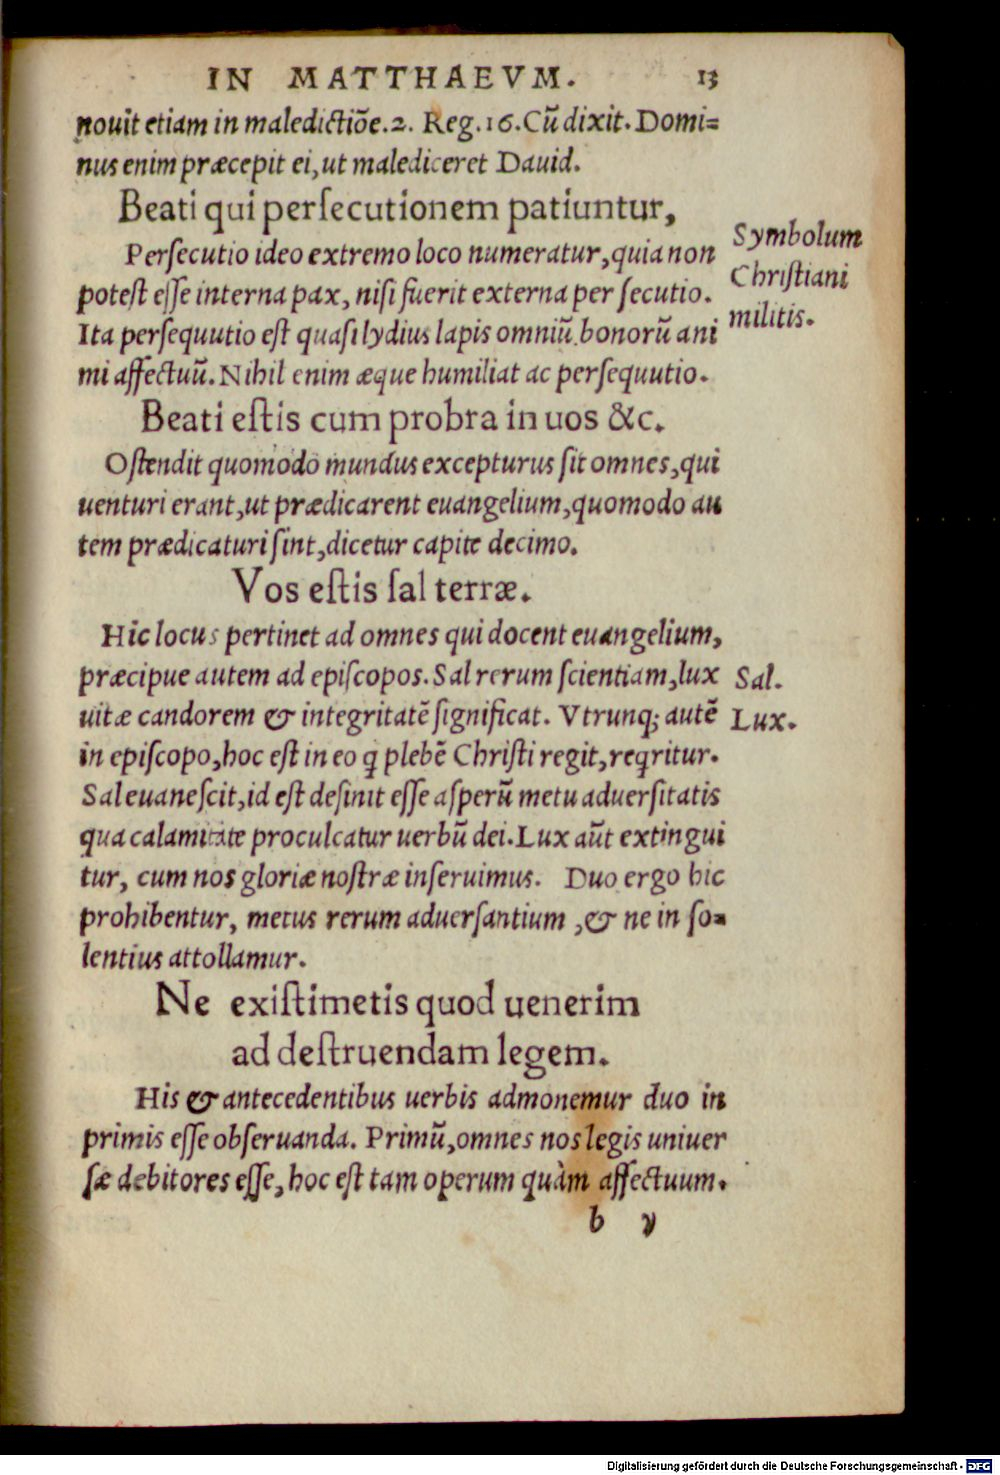 IN MATTHAEVM. 13
nouit etiam in maledictiõe. 2. Reg. 16. Cũ dixit. Domi=
nus enim præcepit ei, ut malediceret Dauid.
Beati qui persecutionem patiuntur,
Persecutio ideo extremo loco numeratur, quia non
potest esse interna pax, nisi fuerit externa persecutio.
Ita persequutio est quasi lydius lapis omniũ bonorũ ani
mi affectuũ. Nihil enim æque humiliat ac persequutio.
Symbolum
Christiani
militis.
Beati estis cum probra in uos &c.
Ostendit quomodo mundus excepturus sit omnes, qui
uenturi erant, ut prædicarent euangelium, quomodo au
tem prædicaturi sint, dicetur capite decimo.
Vos estis sal terræ.
Hic locus pertinet ad omnes qui docent euangelium,
præcipue autem ad episcopos. Sal rerum scientiam, lux
uitæ candorem & integritatẽ significat. Vtrunq; autẽ
in episcopo, hoc est in eo q̃ plebẽ Christi regit, reqritur.
Sal euanescit, id est desinit esse asperũ metu aduersitatis
qua calamitate proculcatur uerbũ dei. Lux aũt extingui
tur, cum nos gloriæ nostræ inseruimus. Duo ergo hic
prohibentur, metus rerum aduersantium, & ne in so=
lentius attollamur.
Sal.
Lux.
Ne existimetis quod uenerim
ad destruendam legem.
His & antecedentibus uerbis admonemur duo in
primis esse obseruanda. Primũ, omnes nos legis uniuer
sæ debitores esse, hoc est tam operum quàm affectuum.
b v
Digitalisierung gefördert durch die Deutsche Forschungsgemeinschaft - DFG